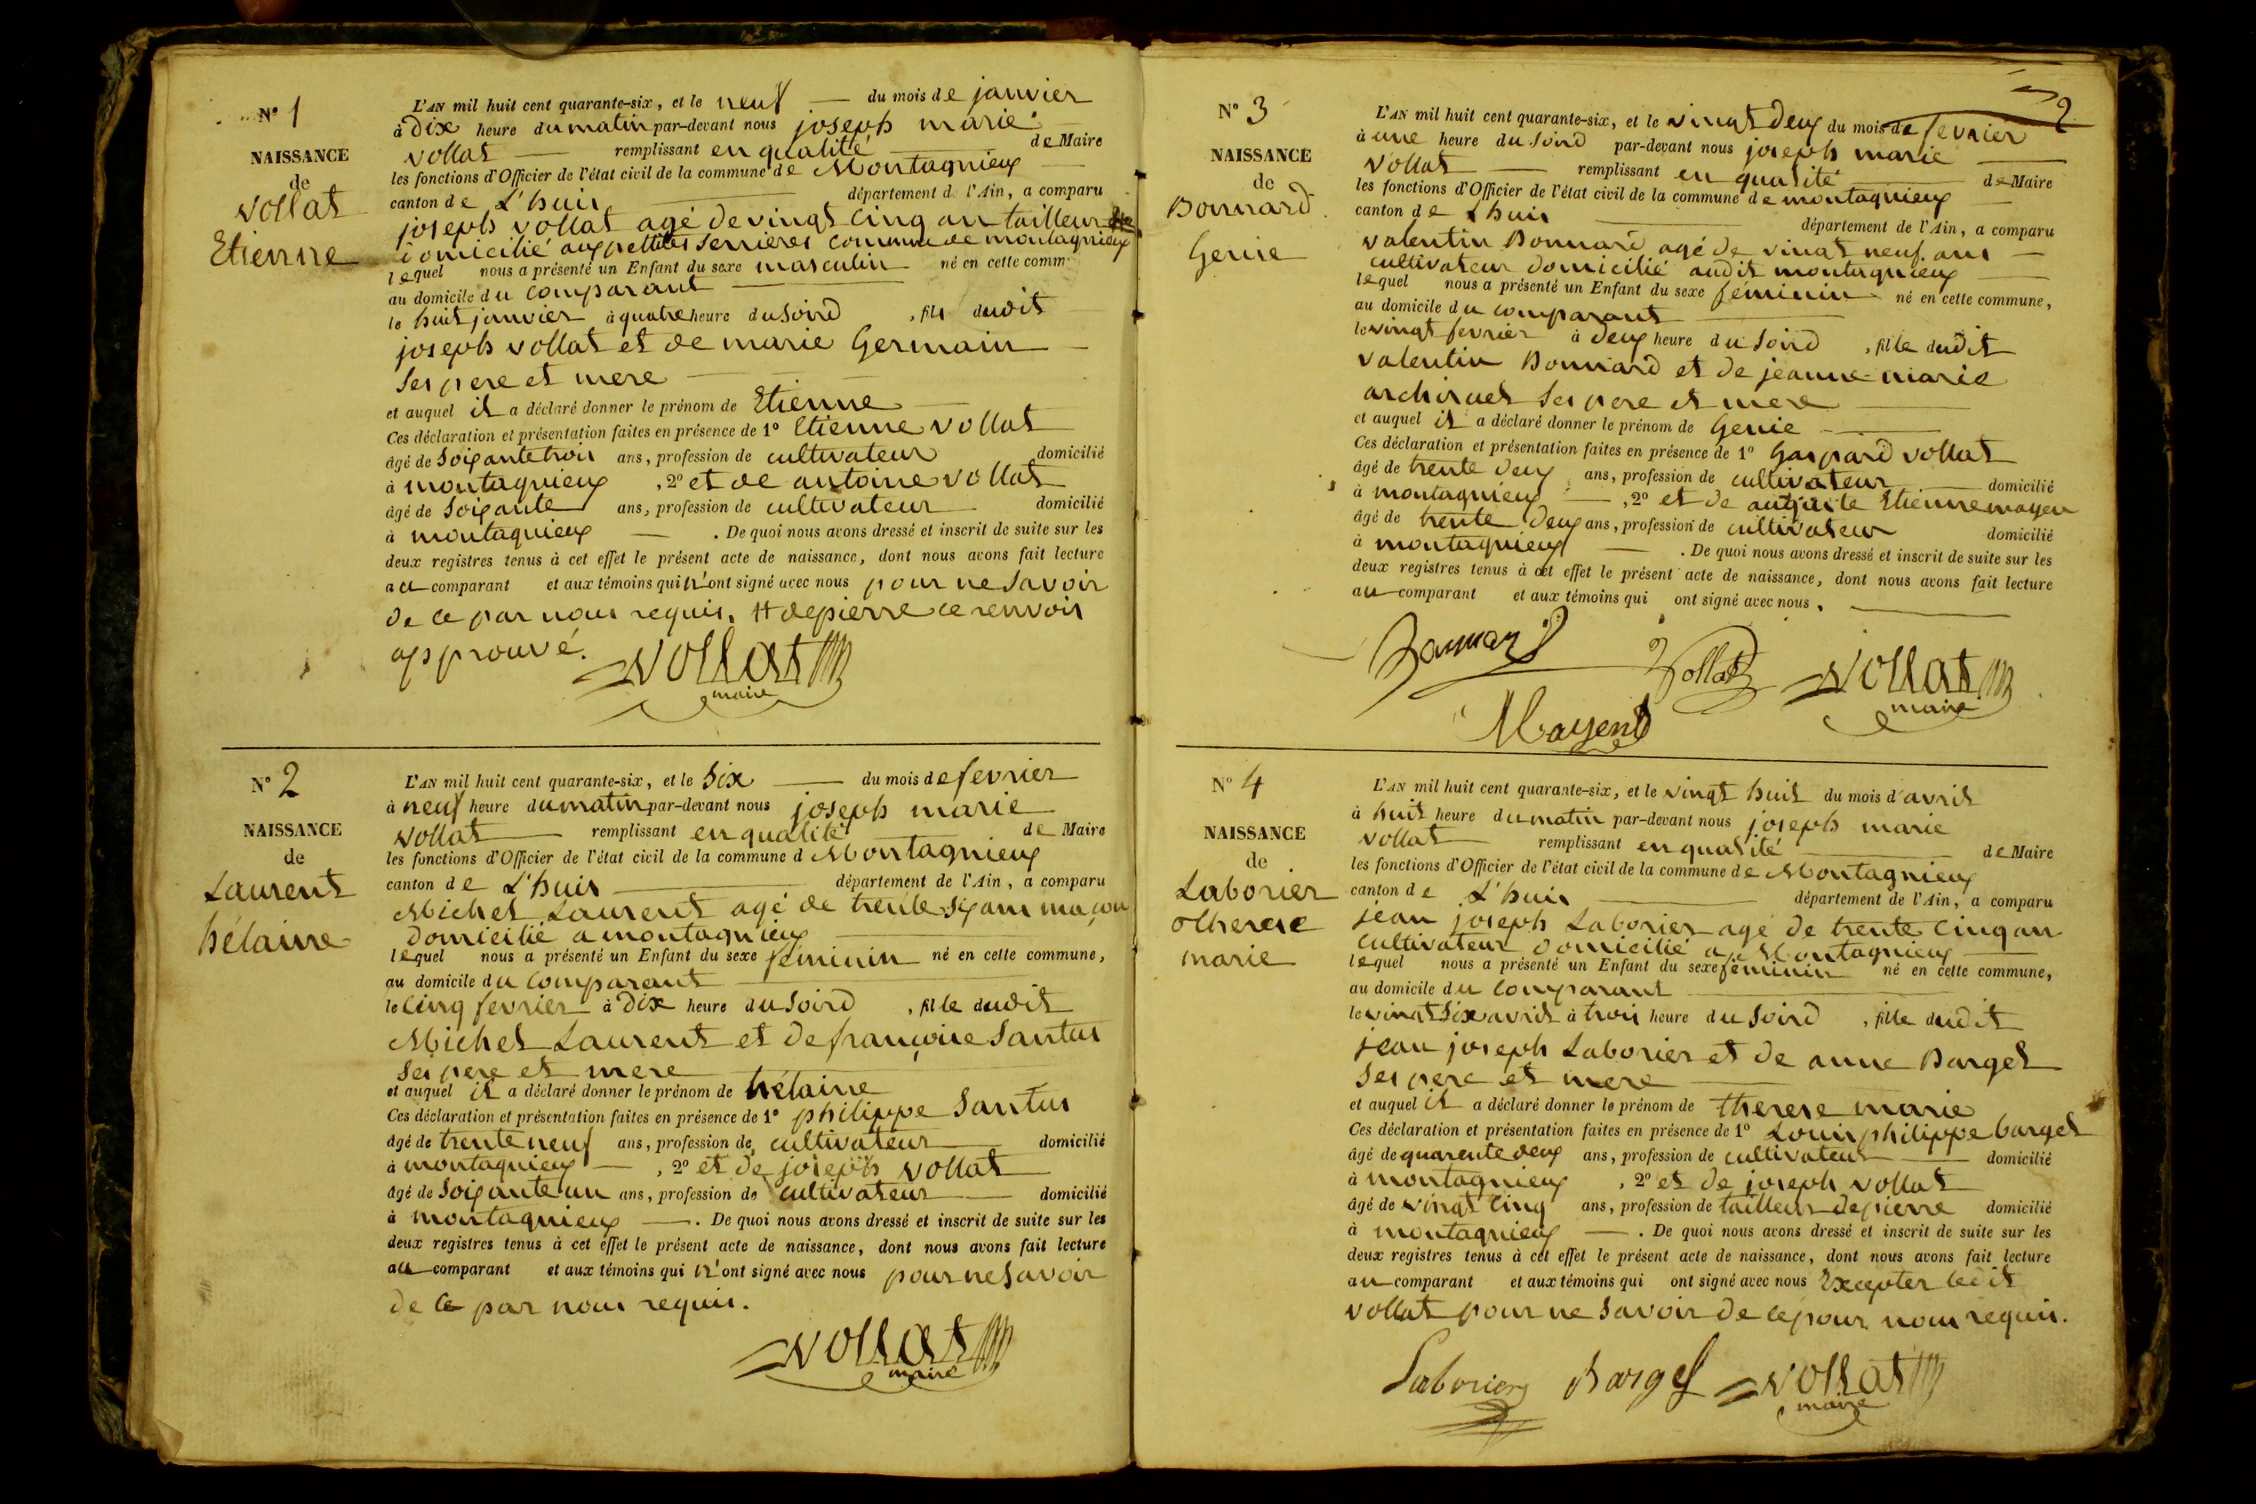 N° 1
NAISSANCE
de
vollat
Etienne
L'AN mil huit cent quarante-six, et le neuf du mois de janvier
à Dix heure du matin par-devant nous joseph marie
vollat remplissant en qualité de Maire
les fonctions d'Officier de l'état civil de la commune de Montagnieux
canton de L'huis département de l'Ain, a comparu
joseph vollat agé de vingt cinq an tailleur #
domicilié aux pettites serrieres commune de montagnieux
lequel nous a présenté un Enfant du sexe masculin né en cette comm
au domicile du comparant
le huit janvier à quatre heure du soird , fils dudit
joseph vollat et de marie Germain
ses pere et mere
et auquel il a déclaré donner le prénom de Etienne
Ces déclaration et présentation faites en présence de 1° Etienne vollat
âgé de soixante trois ans, profession de cultivateur domicilié
à montagnieux , 2° et de antoine vollat
âgé de soixante ans, profession de cultivateur domicilié
à montagnieux . De quoi nous avons dressé et inscrit de suite sur les
deux registres tenus à cet effet le présent acte de naissance, dont nous avons fait lecture
au comparant et aux témoins qui n'ont signé avec nous pour ne savoir
de ce par nous requis. # de pierre ce renvois
approuvé.
vollat
maire
N° 2
NAISSANCE
de
Laurent
hélaine
L'AN mil huit cent quarante-six, et le Six du mois de fevrier
à neuf heure du matin par-devant nous joseph marie
vollat remplissant en qualité de Maire
les fonctions d'Officier de l'état civil de la commune d Montagnieux
canton de L'huis département de l'Ain, a comparu
Michel Laurent agé de trente six ans maçon
domicilié a montagnieux
lequel nous a présenté un Enfant du sexe féminin né en cette commune,
au domicile du comparant
le cinq fevrier à Dix heure du soird , fille dudit
Michel Laurent et de françoise Santus
ses pere et mere
et auquel il a déclaré donner le prénom de hélaine
Ces déclaration et présentation faites en présence de 1° philippe Santus
âgé de trente neuf ans, profession de cultivateur domicilié
à montagnieux , 2° et de joseph vollat
âgé de soixante un ans, profession de cultivateur domicilié
à montagnieux . De quoi nous avons dressé et inscrit de suite sur les
deux registres tenus à cet effet le présent acte de naissance, dont nous avons fait lecture
au comparant et aux témoins qui n'ont signé avec nous pour ne savoir
de ce par nous requis.
vollat
maire
2
N° 3
NAISSANCE
de
Bonnard
Genie
L'AN mil huit cent quarante-six, et le vingt deux du mois de fevrier
à une heure du soird par-devant nous joseph marie
vollat remplissant en qualité de Maire
les fonctions d'Officier de l'état civil de la commune de montagnieux
canton de Lhuis département de l'Ain, a comparu
valentin Bonnard agé de vingt neuf ans
cultivateur domicilié audit montagnieux
lequel nous a présenté un Enfant du sexe féminin né en cette commune,
au domicile du comparant
le vingt fevrier à deux heure du soird , fille dudit
valentin Bonnard et de jeanne marie
archiruel ses pere et mere
et auquel il a déclaré donner le prénom de Genie
Ces déclaration et présentation faites en présence de 1° Gaspard vollat
âgé de trente deux ans, profession de cultivateur domicilié
à montagnieux , 2° et de auguste Etienne mayen
âgé de trente deux ans, profession de cultivateur domicilié
à montagnieux . De quoi nous avons dressé et inscrit de suite sur les
deux registres tenus à cet effet le présent acte de naissance, dont nous avons fait lecture
au comparant et aux témoins qui ont signé avec nous.
Bonnard vollat vollat
maire
Mayend
N° 4
NAISSANCE
de
Laborier
therese
marie
L'AN mil huit cent quarante-six, et le vingt huit du mois d'avril
à huit heure du matin par-devant nous joseph marie
vollat remplissant en qualité de Maire
les fonctions d'Officier de l'état civil de la commune de Montagnieux
canton de L'huis département de l'Ain, a comparu
jean joseph Laborier agé de trente cinq an
cultivateur domicilié a Montagnieux
lequel nous a présenté un Enfant du sexe féminin né en cette commune,
au domicile du comparant
le vingt six avril à trois heure du soird , fille dudit
jean joseph Laborier et de anne Barget
ses pere et mere
et auquel il a déclaré donner le prénom de therese marie
Ces déclaration et présentation faites en présence de 1° Louis philippe barget
âgé de quarente deux ans, profession de cultivateur domicilié
à montagnieux , 2° et de joseph vollat
âgé de vingt cinq ans, profession de tailleur de pierre domicilié
à montagnieux . De quoi nous avons dressé et inscrit de suite sur les
deux registres tenus à cet effet le présent acte de naissance, dont nous avons fait lecture
au comparant et aux témoins qui ont signé avec nous Excepter ledit
vollat pour ne savoir de ce pour nous requis.
Laborier Barget vollat
maire